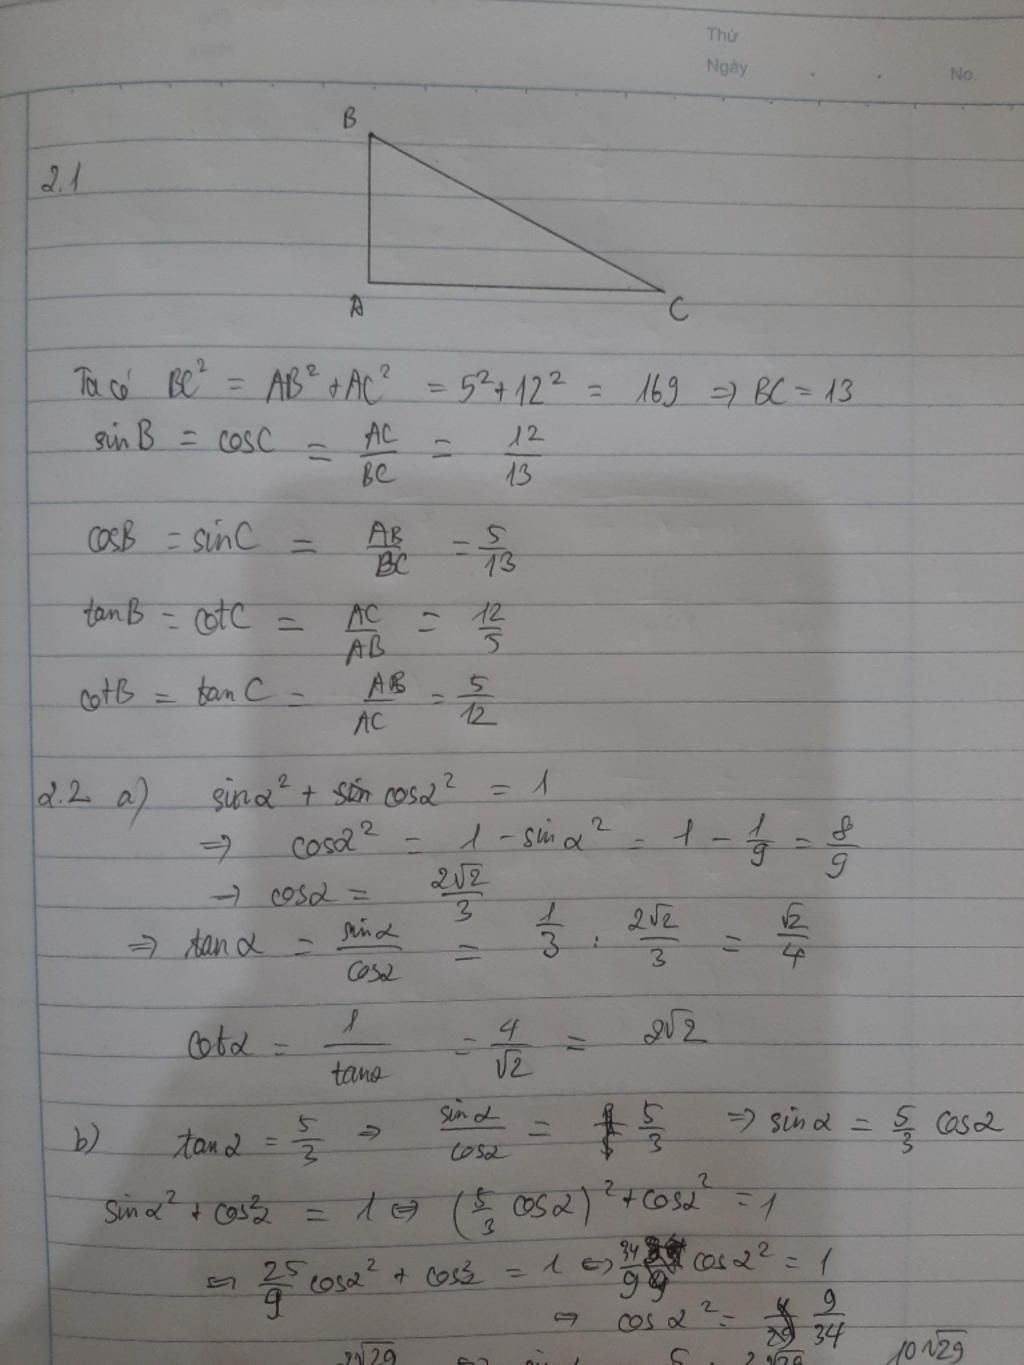 Thứ
Ngày
No.
B
2.1
A
C
Ta có BC² = AB² + AC² = 5² + 12² = 169 ⇒ BC = 13
sinB = cosC = AC/BC = 12/13
cosB = sinC = AB/BC = 5/13
tanB = cotC = AC/AB = 12/5
cotB = tanC = AB/AC = 5/12
2.2 a) sinα² + sin cosα² = 1
⇒ cosα² = 1 - sinα² = 1 - 1/9 = 8/9
→ cosα = 2√2/3
⇒ tanα = sinα/cosα = 1/3 : 2√2/3 = √2/4
cotα = 1/tanα = 4/√2 = 2√2
b) tanα = 5/3 ⇒ sinα/cosα = 5/3 ⇒ sinα = 5/3 cosα
sinα² + cos²α = 1 ⇔ (5/3 cosα)² + cosα² = 1
⇔ 25/9 cosα² + cos² = 1 ⇔ 34/9 cosα² = 1
⇔ cosα² = 9/34
2√29 10√29